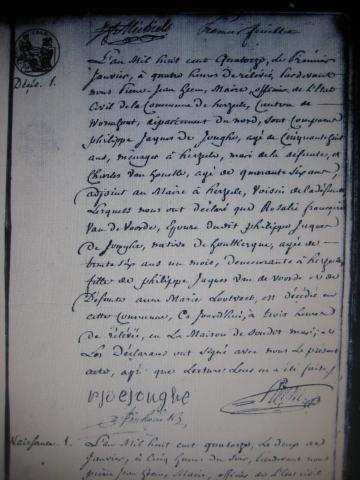 premier feuillet
Décès. 1.
L'an Mil huit cent quatorze, le Premier
Janvier, à quatre heures de relevée, pardevant
nous Pierre Jean, Maire, officier de l'Etat
Civil de la Commune de herzeele, Canton de
Wormhout, département du nord, sont Comparus
philippe Jaques de Jonghe, agé de Cinquante huit
ans, ménager à herzeele, mari de la défunte, et
Charles Van houtte, agé de quarante six ans,
adjoint au Maire à herzeele, Voisin de la défunte
Lesquels nous ont déclaré que Rosalie françoise
Van de Voorde, Epouse dudit philippe Jaques
De Jonghe, native de houtkerque, agée de
trente six ans un mois, demeurante à herzeele
fille de philippe Jaques Van de Voorde et de
Défunte anne Marie est décédée en
cette Commune, Ce Jourd'hui, à trois heures
de relevée, en La Maison de Sondit mari; et
Les Déclarans ont signé avec nous Le présent
acte, après que Lecture Leur en a été faite
PJ DeJonghe
Naissance 1.
L'an Mil huit cent quatorze, Le deux de
Janvier, à Cinq heures du Soir, pardevant nous
Pierre Jean, Maire, officier de l'Etat civil